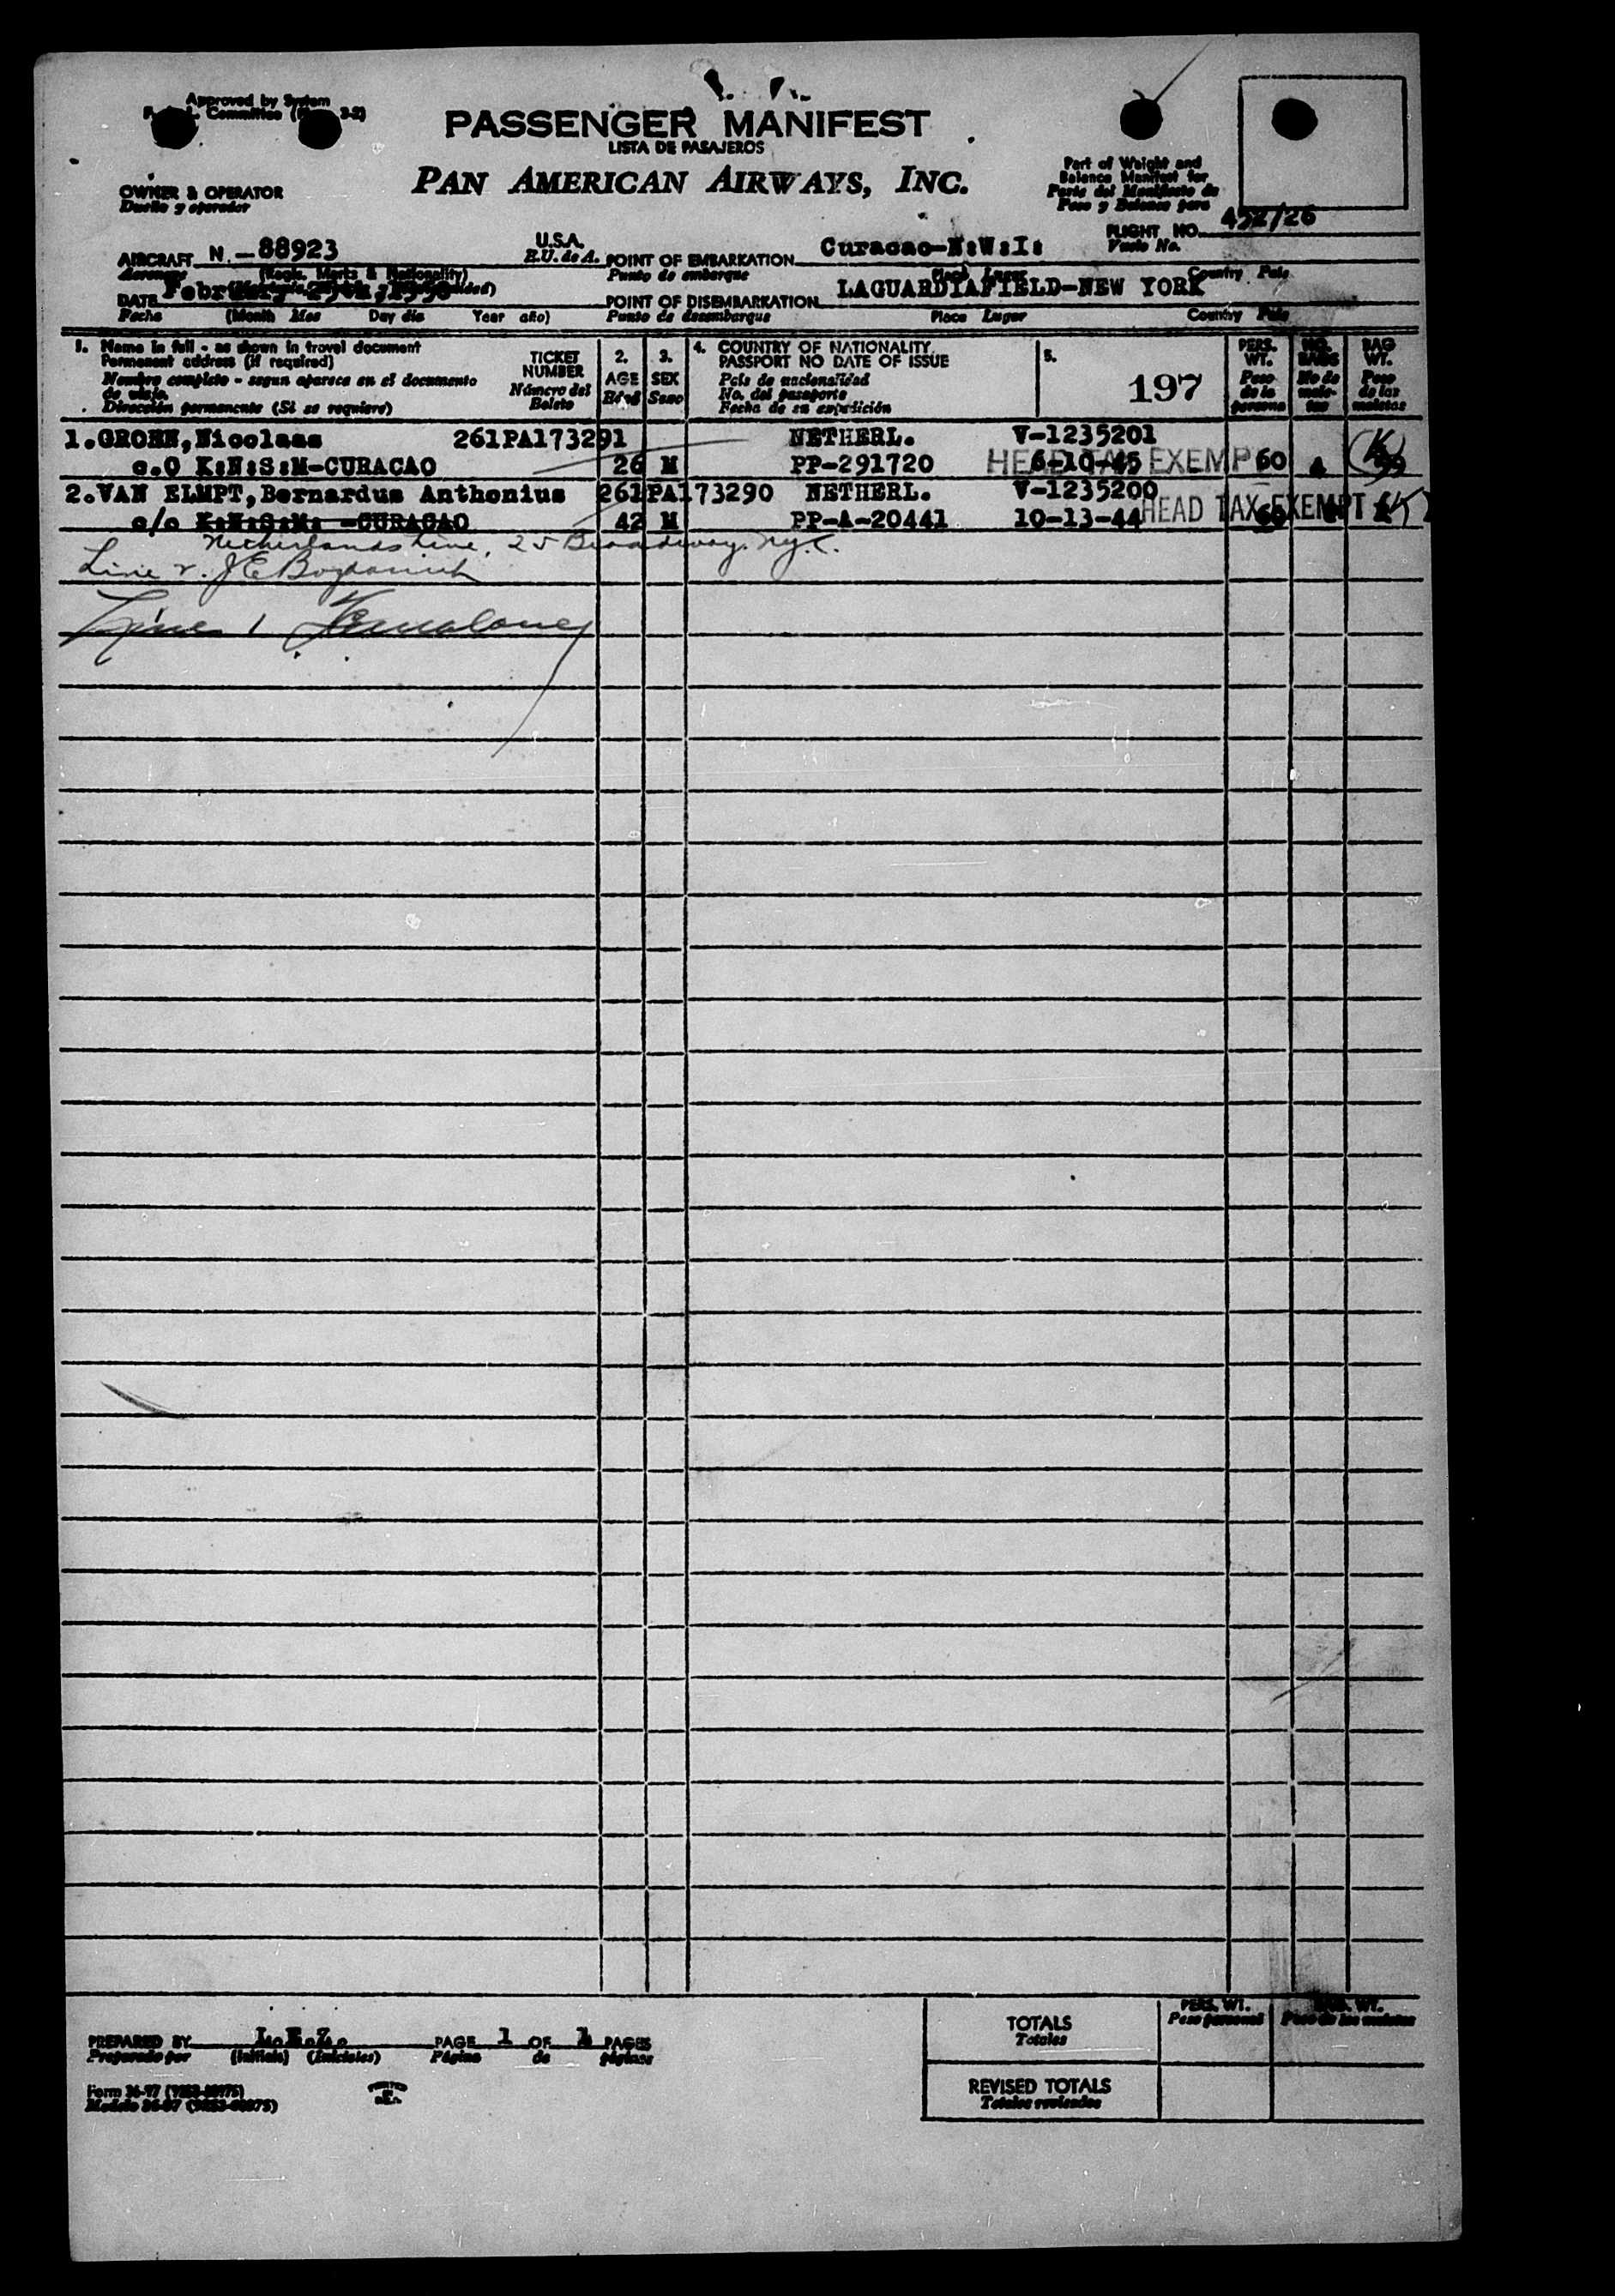 Approved by System
PASSENGER MANIFEST
LISTA DE PASAJEROS
PAN AMERICAN AIRWAYS, INC.
OWNER & OPERATOR
Dueño y operador
Part of Weight and
Balance Manifest for
Parte del Manifiesto de
Peso y Balance para
FLIGHT NO. 452/26
Vuelo No.
AIRCRAFT N.-88923 U.S.A.
Aeronave E.U. de A.
POINT OF EMBARKATION Curacao-N:W:I:
Punto de embarque Place Lugar Country País
DATE
Fecha (Month Mes Day día Year año)
POINT OF DISEMBARKATION LAGUARDIAFIELD-NEW YORK
Punto de desembarque Place Lugar Country País
1. Name in full - as shown in travel document
Permanent address (if required)
Nombre completo - segun aparece en el documento
de viaje.
Dirección permanente (Si se requiere)
TICKET
NUMBER
Número del
Boleto
2.
AGE
Edad
3.
SEX
Sexo
4. COUNTRY OF NATIONALITY
PASSPORT NO DATE OF ISSUE
País de nacionalidad
No. del pasaporte
Fecha de su expedición
5.
197
PERS.
WT.
Peso
de la
persona
NO.
BAGS
No de
male-
tas
BAG
WT.
Peso
de las
maletas
1.GROEN,Nicolaas 261PA173291 NETHERL. V-1235201
c.O K:N:S:M-CURACAO 26 M PP-291720 6-10-45 HEAD TAX EXEMPT 60
2.VAN ELMPT,Bernardus Anthonius 261PA173290 NETHERL. V-1235200
c/o K:N:S:M: -CURACAO 42 M PP-A-20441 10-13-44 HEAD TAX EXEMPT
Netherlands Line, 25 Broadway. N.Y.C.
Line 2. J E
Line 1
PREPARED BY L.E.Z. PAGE 1 OF 1 PAGES
Preparado por (Initials) (Iniciales) Página de páginas
TOTALS
Totales
PERS. WT.
Peso personal
BAG. WT.
Peso de las maletas
REVISED TOTALS
Totales revisados